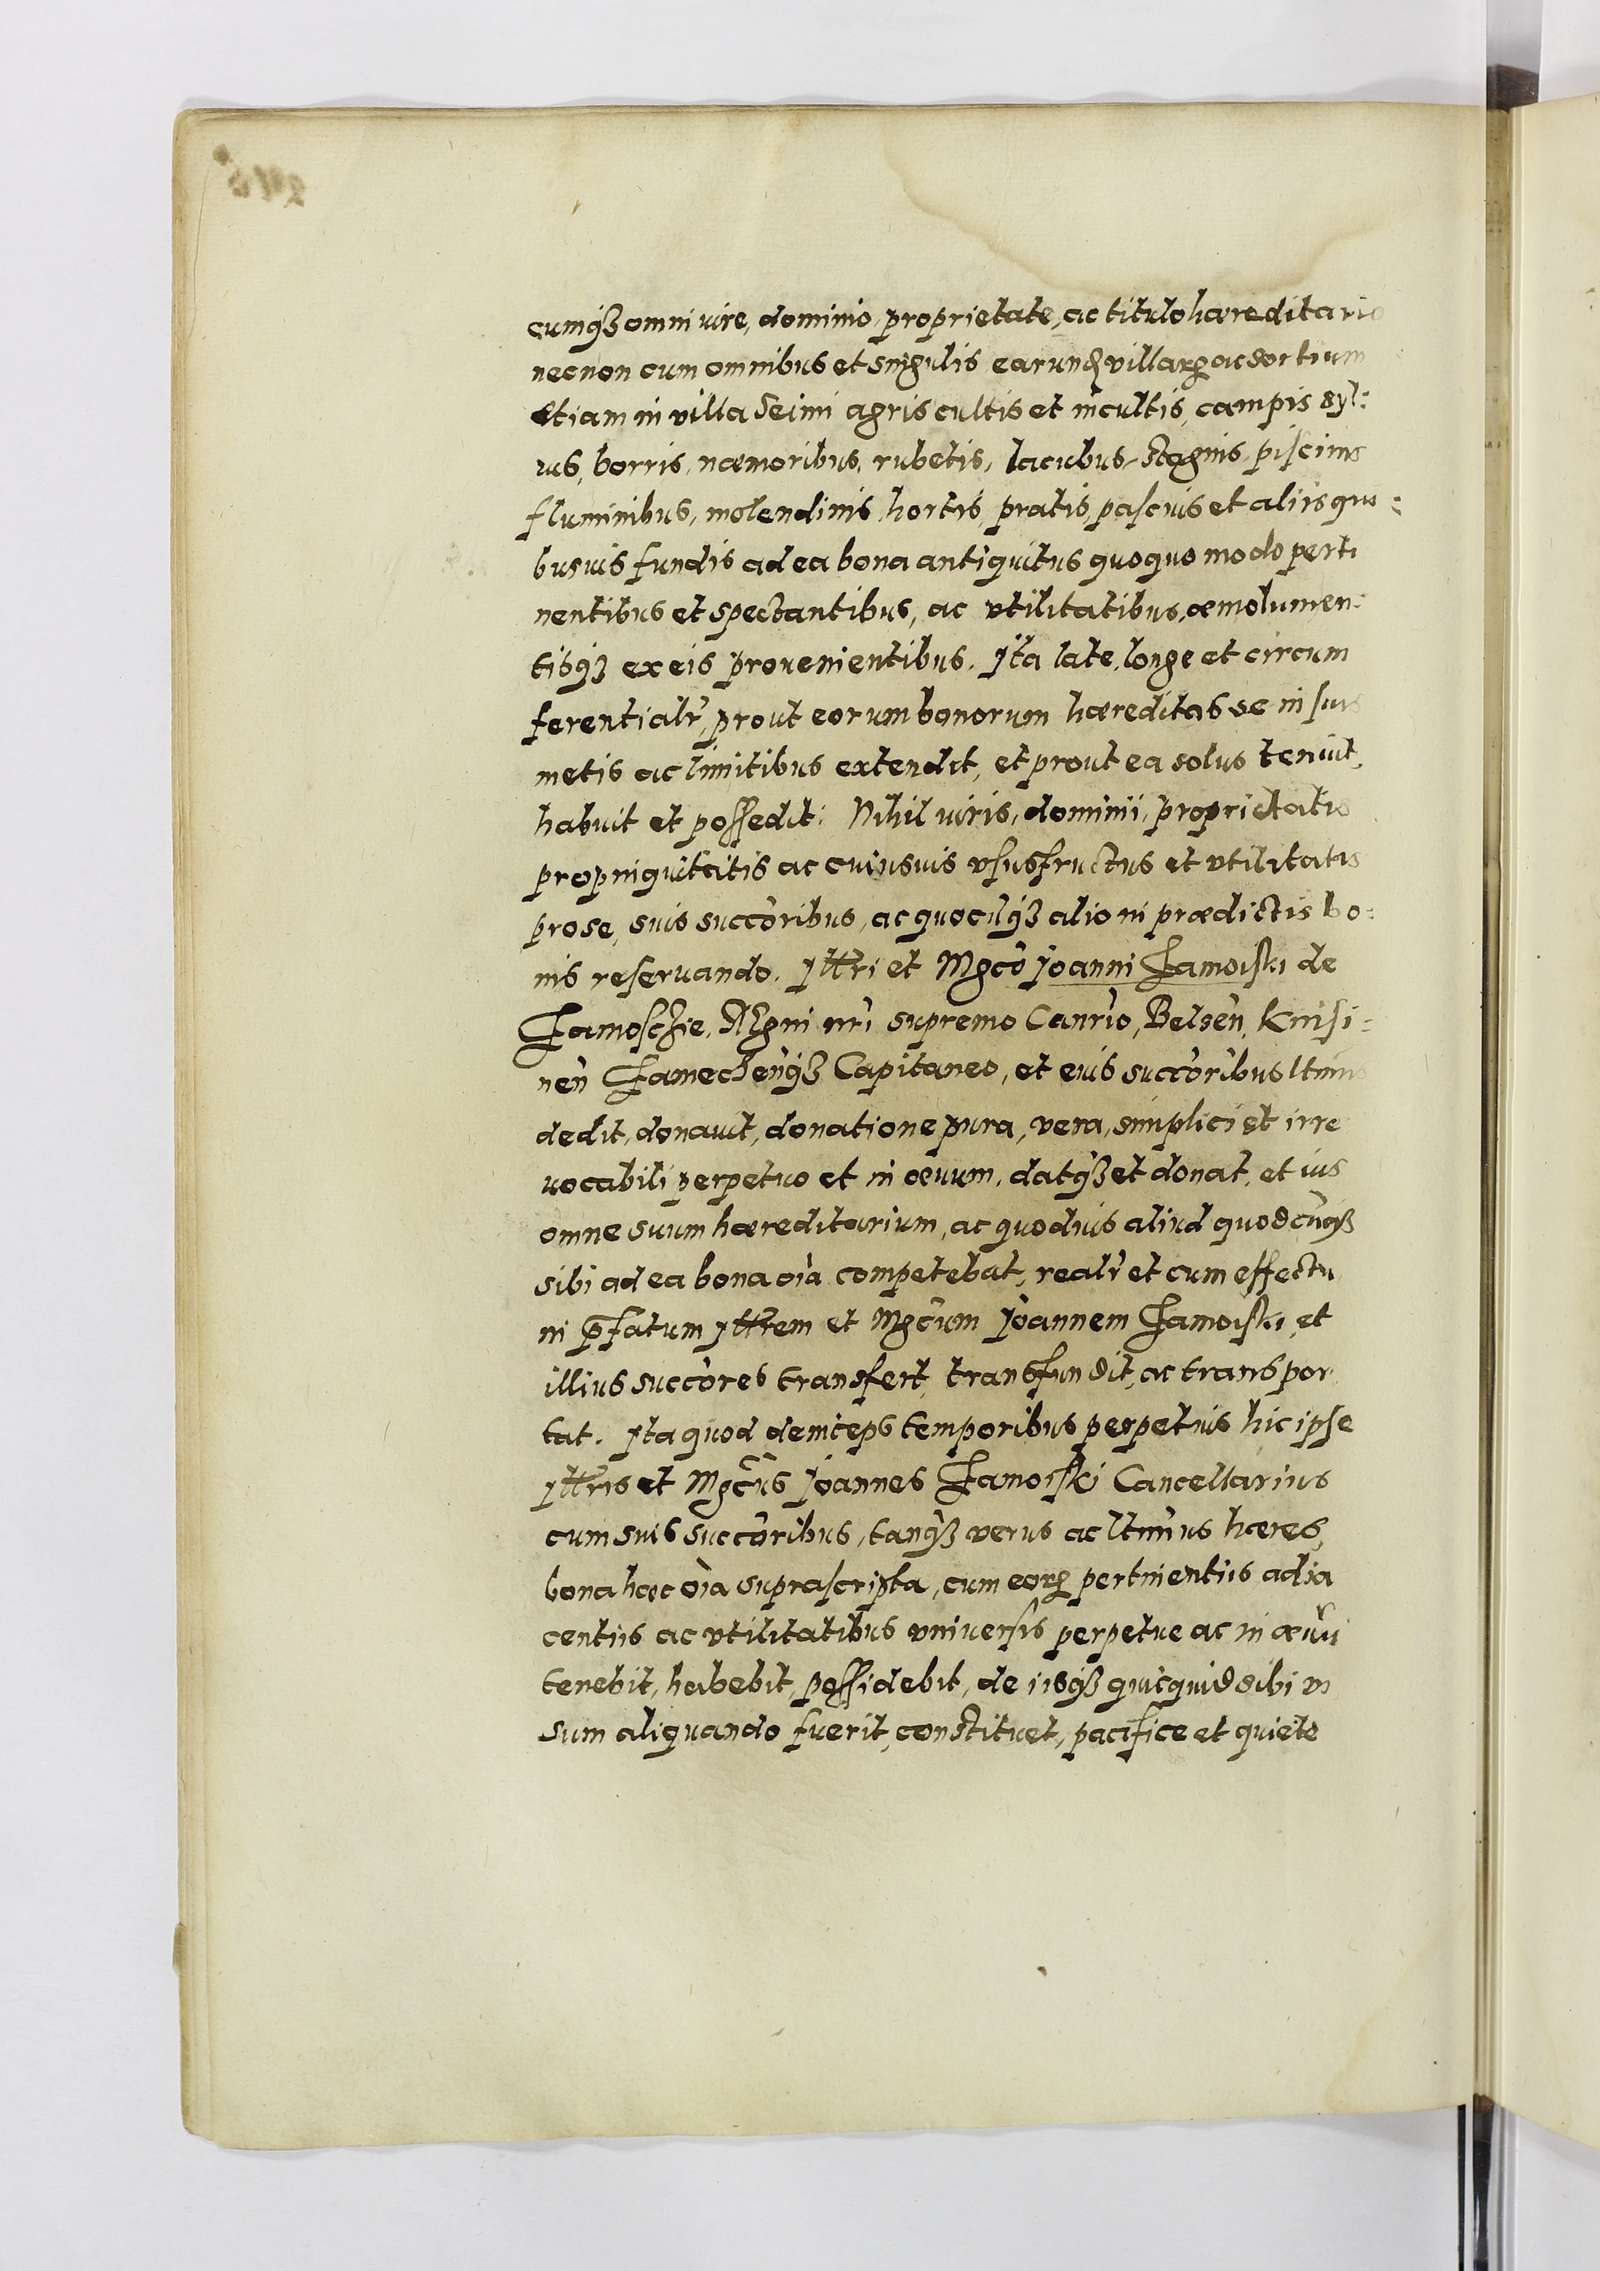 cumq₃ omni iure, dominio, proprietate, ac titulo hæreditario
necnon cum omnibus et singulis earund villarꝝ ac sortium
etiam in villa Seimi agris cultis et incultis, campis syl:
uis, borris, næmoribus, rubetis, lacubus, stagnis, piscinis
fluminibus, molendinis, hortis, pratis, pascuis et aliis qui:
busuis fundis ad ea bona antiquitus quoquo modo perti
nentibus et spectantibus, ac vtilitatibus, æmolumen:
tisq₃ ex eis prouenientibus. Ita late, longe et circum
ferentialr̃, prout eorum bonorum hæreditas se in suis
metis ac limitibus extendit, et prout ea solus tenuit,
habuit et possedit: Nihil iuris, dominii, proprietatis
propinquitatis ac cuiusuis vsusfructus et vtilitatis
pro se, suis succoribus, ac quocũq₃ alio in prædictis bo:
nis reseruando. Illri et Mgco Joanni Zamoiski de
Zamoschie, Rgni nr̃i supremo Canrio, Belsen, Knisi:
nen Zamechenq₃ Capitaneo, et eius succoribus ltimis
dedit, donauit, donatione pura, vera, simplici et irre
uocabili perpetuo et in æuum, datq₃ et donat, et ius
omne suum hæreditarium, ac quoduis aliud quodcũq₃
sibi ad ea bona oĩa competebat, realr̃ et cum effectu
in p̃fatum Illrem et Mgcum Joannem Zamoiski, et
illius succores transfert, transfundit, ac transpor
tat. Ita quod deinceps temporibus perpetuis hic ipse
Illris et Mgcus Joannes Zamoiski Cancellarius
cum suis succoribus, tanq₃ verus ac ltimus hæres,
bona hæc oĩa suprascripta, cum eorꝝ pertinentiis adia
centiis ac vtilitatibus vniuersis perpetue ac in æuũ
tenebit, habebit, possidebit, de iisq₃ quicquid sibi vi
sum aliquando fuerit, constituet, pacifice et quiete